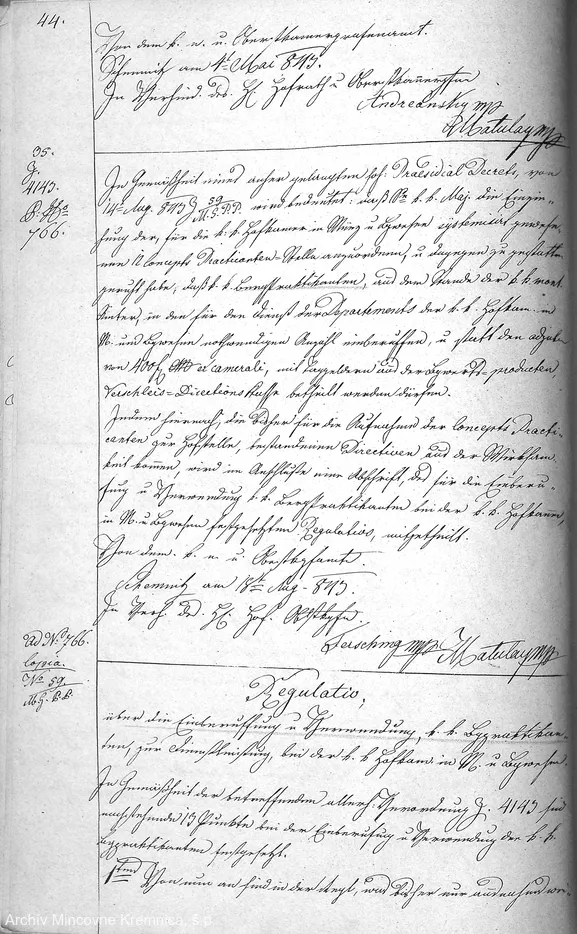 44.
Von dem k. n. u. Oberstkamergrafenamt.
Schemnitz am 4t Mai 843.
In Verhind. des H Hofrath u Oberstkamergrafen
Andreansky mp
Matulay mp
35.
J.
4143.
766.
In Gemäßheit eines anher gelangten hoh: Praesidial Decrets, von
14ten Aug. 843 J 59 M.G.P.P. wird bedeutet: daß Se k. k. Maj. die Einzie-
hung der, für die k. k. Hofkamer in Münz u Bgwesen systemisirt gewese-
nen Concepts Practicanten-Stelle anzuordnen, u dagegen zu gestatten
geruht habe, daß k. k. Bergpraktikanten, aus dem Stande der k. k. mont.
Ämter, in den für den Dienst der Departements der k. k. Hofkam. in
M. und Bgwesen nothwendigen Anzahl einberuffen, u statt den adjuten
von 400f ex camerali, mit Taggeldern aus der Bgwerks-producten
Verschleis-Directions Kasse betheilt werden dürfen.
Indem hiernach, die bisher für die Aufnahme der Concepts Practi-
canten zur Hofstelle, bestandenen Directiven aus der Wirksam-
keit kommen, wird im Anschluße eine Abschrift, des für die Einberu-
fung u Verwendung k. k. Bergpraktikanten bei der k. k. Hofkamer,
in M. u Bgwesen festgesetzten Regulativs, mitgetheilt.
Von dem k. n. u. Obestkgfamte.
Schemnitz am 18t Aug. 843.
In Verh. des H Hof.
Ferschin mp Matulay mp
ad No 766.
Copia.
No 59.
M.G. P.P.
Regulativ,
über die Einberuffung u Verwendung, k. k. Bgpraktikan-
ten, zur Dienstleistung, bei der k. k Hofkam. in M. u Bgwesen.
In Gemäßheit der betreffenden allerh: Verordnung J. 4143 sind
nachstehende 13 Punkte bei der Einberufung u Verwendung der k. k.
Bgpraktikanten festgesetzt.
1tens Von nun an sind in der Regel, was bisher nur ausnahmswei-
Archív Mincovne Kremnica, š.p.